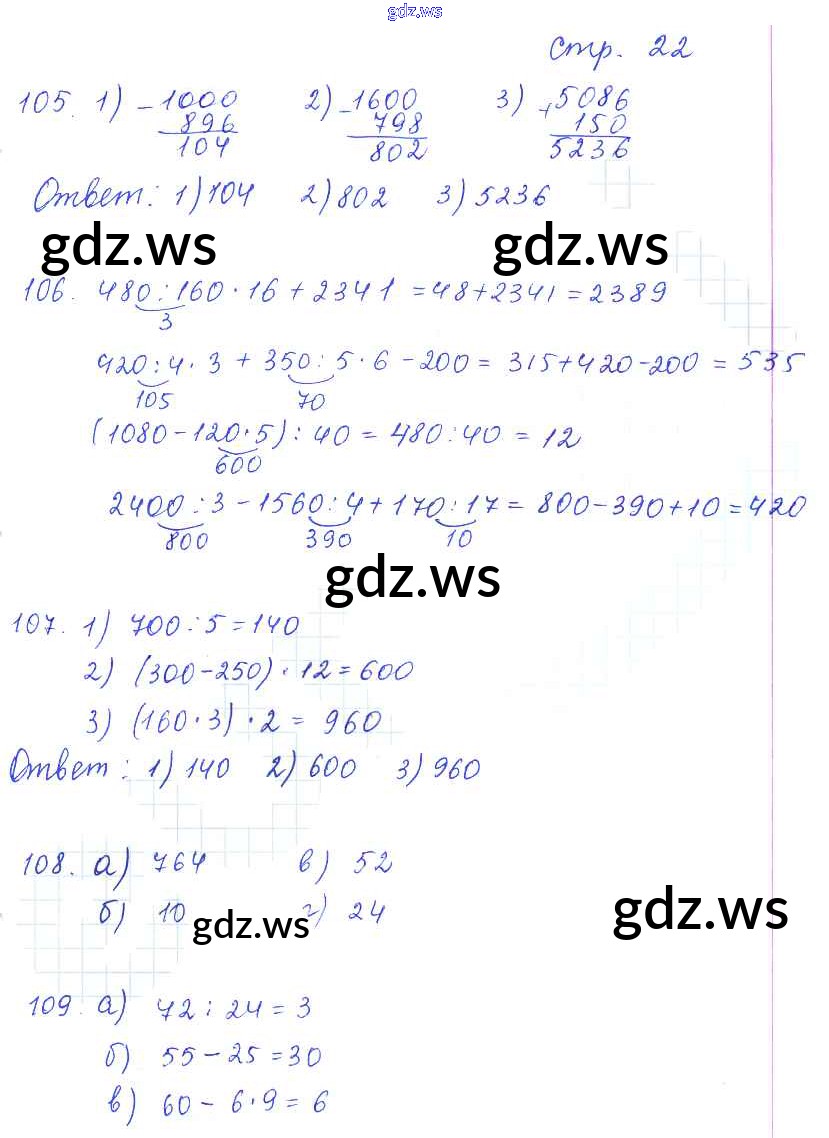 gdz.ws
стр. 22
105. 1) - 1000 2) - 1600 3) + 5086
896 798 150
104 802 5236
Ответ: 1) 104 2) 802 3) 5236
gdz.ws gdz.ws
106. 480 : 160 · 16 + 2341 = 48 + 2341 = 2389
3
420 : 4 · 3 + 350 : 5 · 6 - 200 = 315 + 420 - 200 = 535
105 70
(1080 - 120 · 5) : 40 = 480 : 40 = 12
600
2400 : 3 - 1560 : 4 + 170 : 17 = 800 - 390 + 10 = 420
800 390 10
gdz.ws
107. 1) 700 : 5 = 140
2) (300 - 250) · 12 = 600
3) (160 · 3) · 2 = 960
Ответ: 1) 140 2) 600 3) 960
108. а) 764 в) 52
б) 10 г) 24
gdz.ws gdz.ws
109. а) 72 : 24 = 3
б) 55 - 25 = 30
в) 60 - 6 · 9 = 6